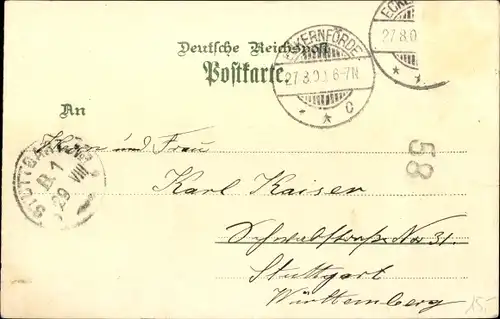 Deutsche Reichspost
Postkarte.
ECKERNFÖRDE
27 8.0 1 6-7N
* c
ECKE
27 8.0
* *
An
Herrn und Frau
STUTTGART
B.1
29 VIII
58
Karl Kaiser
Schwabstraße Nro 31.
Stuttgart
Württemberg
15,-